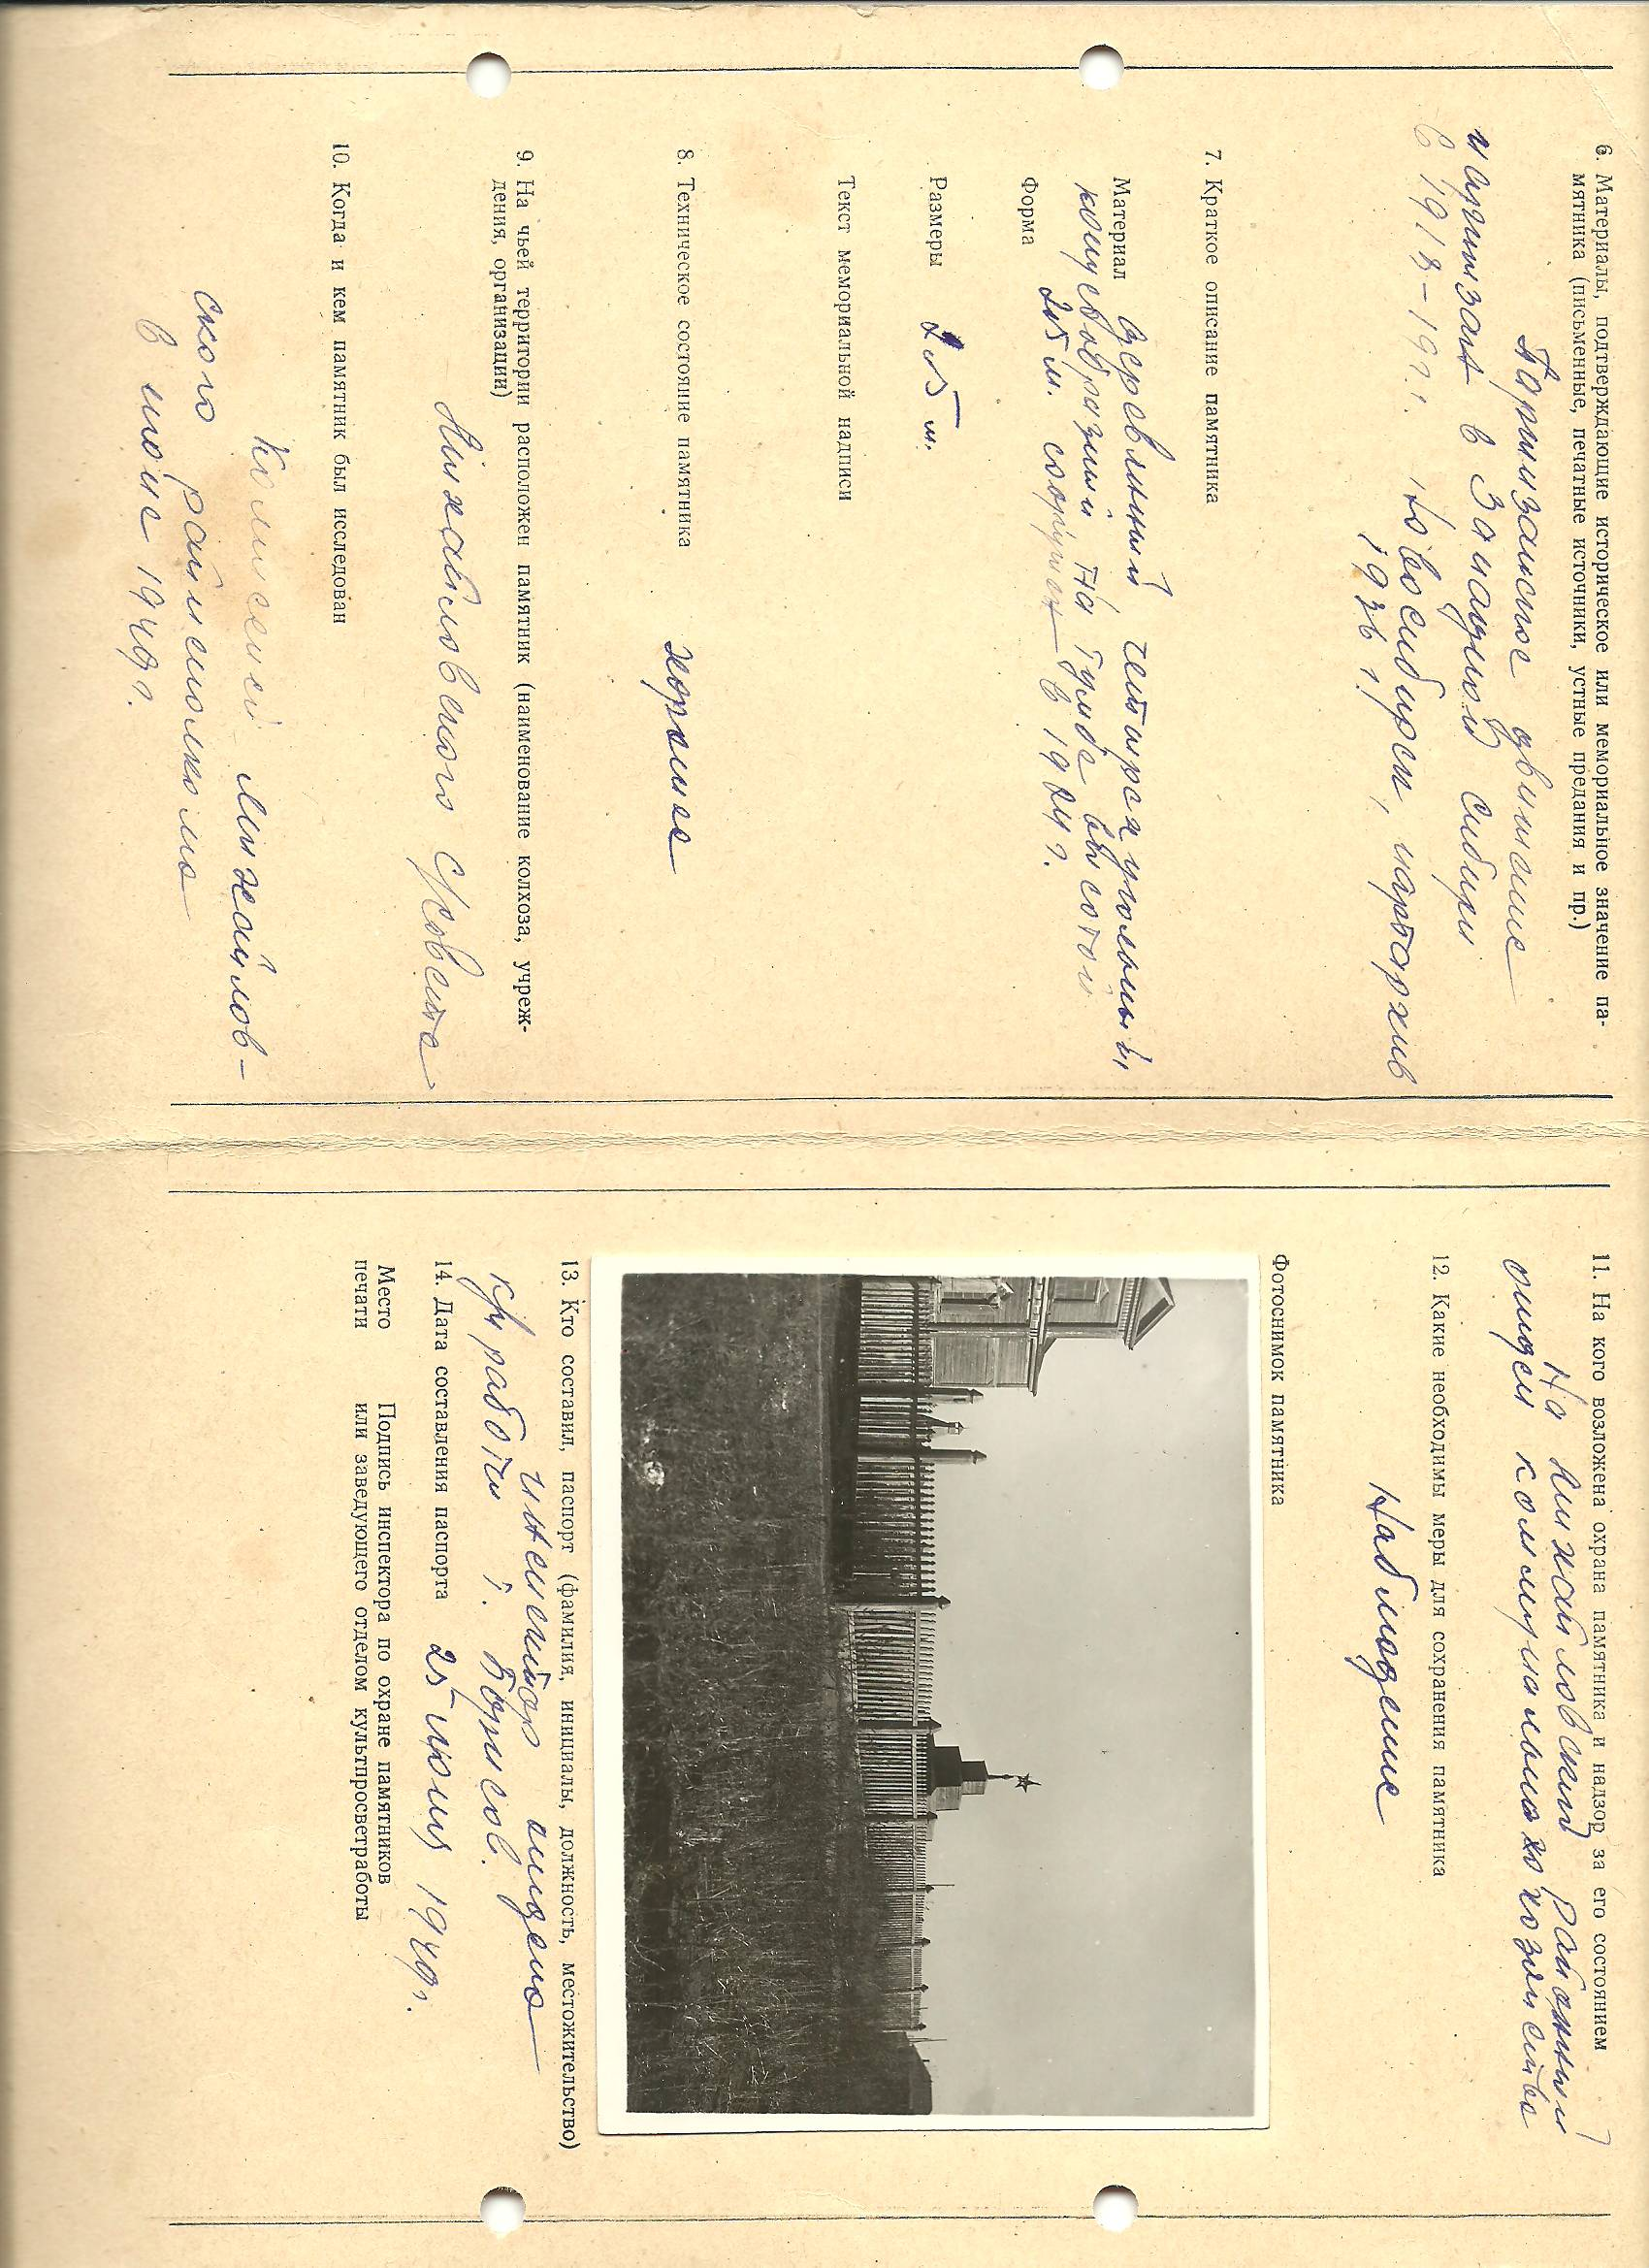 6. Материалы, подтверждающие историческое или мемориальное значение па-
мятника (письменные, печатные источники, устные предания и пр.)
Партизанское движение
и партизан в Западной Сибири
в 1918-19 г.г. Новосибирск, партархив
1936 г.
7. Краткое описание памятника
Материал деревянный четырехугольный,
конусообразный. На тумбе высотой
Форма 2х5 м. сооружен в 1924 г.
Размеры 2х5 м.
Текст мемориальной надписи
8. Техническое состояние памятника хорошее
9. На чьей территории расположен памятник (наименование колхоза, учреж-
дения, организации)
Михайловского с/совета
10. Когда и кем памятник был исследован
Комиссией Михайлов-
ского райисполкома
в июне 1949 г.
11. На кого возложена охрана памятника и надзор за его состоянием
На Михайловский районный
отдел коммунального хозяйства
12. Какие необходимы меры для сохранения памятника
Наблюдение
Фотоснимок памятника
13. Кто составил, паспорт (фамилия, инициалы, должность, местожительство)
отдела
к/пр работы Борисов.
14. Дата составления паспорта 25 1949 г.
Место
печати
Подпись инспектора по охране памятников
или заведующего отделом культпросветработы